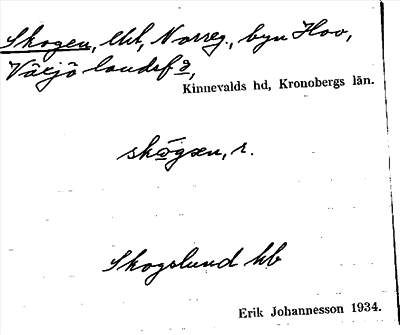 Skogen, lht, Norreg., byn Hov,
Växjö landsf ͟a,
Kinnevalds hd, Kronobergs län.
skògen, r.
Skogslund hb
Erik Johannesson 1934.